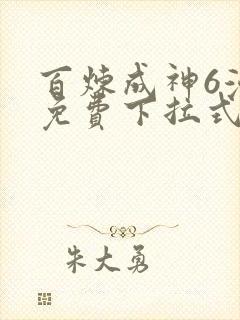 百炼成神6漫
免费下拉式
朱大勇